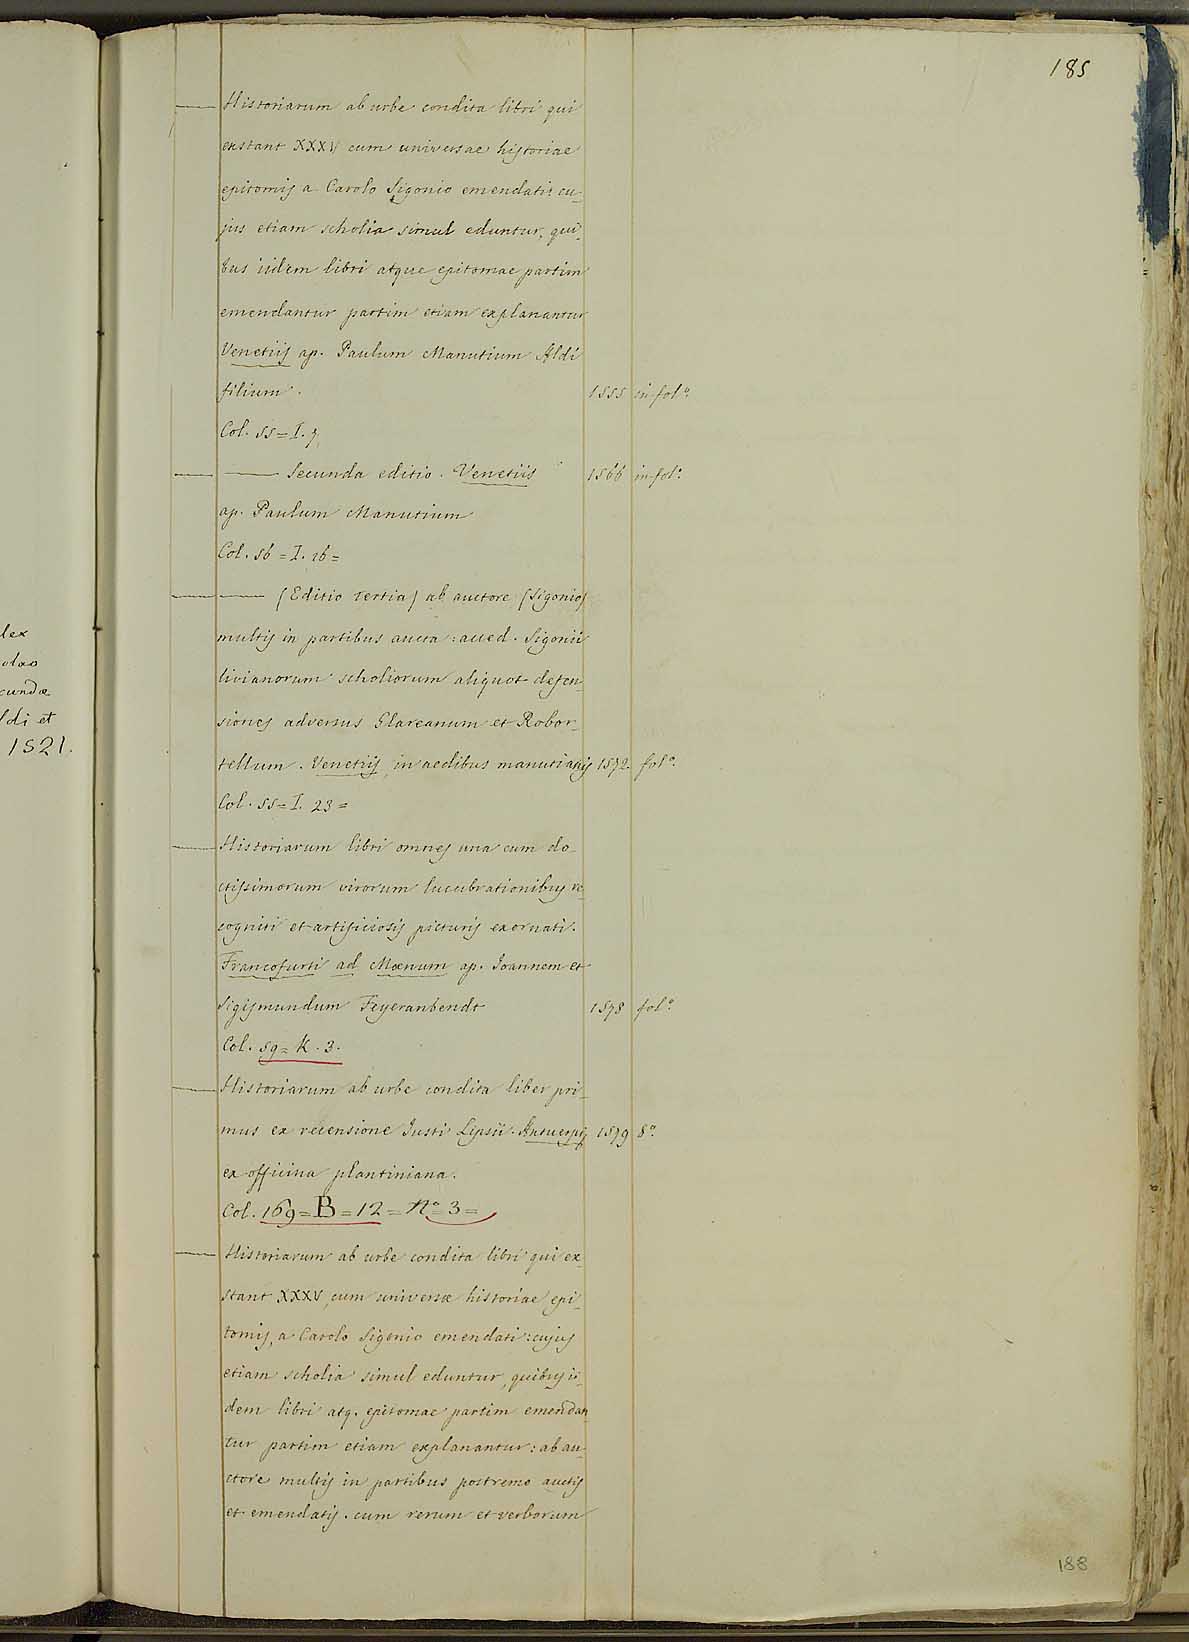 185
— Historiarum ab urbe condita libri qui
exstant XXXV cum universae historiae
epitomis a Carolo Sigonio emendati: cu-
jus etiam scholia simul eduntur, qui-
bus iidem libri atque epitomae partim
emendantur partim etiam explanantur
Venetiis ap. Paulum Manutium Aldi
filium. 1555 in-fol.º
Col. 55 = I. 7.
— — Secunda editio. Venetiis 1566 in-fol.º
ap. Paulum Manutium
Col. 56 = I. 16 =
— — (Editio tertia) ab auctore (Sigonio)
multis in partibus aucta: acced. Sigonii
livianorum scholiorum aliquot defen-
siones adversus Glareanum et Robor-
tellum. Venetiis, in aedibus manutianis 1572. fol.º
Col. 55 = I. 23 =
— Historiarum libri omnes una cum do-
ctissimorum virorum lucubrationibus re-
cogniti et artificiosis picturis exornati.
Francofurti ad Mœnum ap. Joannem et
Sigismundum Feyeranbendt 1578 fol.º
Col. 59 = K. 3.
— Historiarum ab urbe condita liber pri-
mus ex recensione Justi Lipsii. Antuerpiæ 1579 8.º
ex officina plantiniana.
Col. 169 = B = 12 = Nº 3 =
— Historiarum ab urbe condita libri qui ex-
stant XXXV, cum universæ historiae epi-
tomis, a Carolo Sigonio emendati: cujus
etiam scholia simul eduntur, quibus ii-
dem libri atq. epitomae partim emendan
tur partim etiam explanantur: ab au-
ctore multis in partibus postremo auctis
et emendatis. cum rerum et verborum
188
lex
olao
cundæ
ldi et
1521.